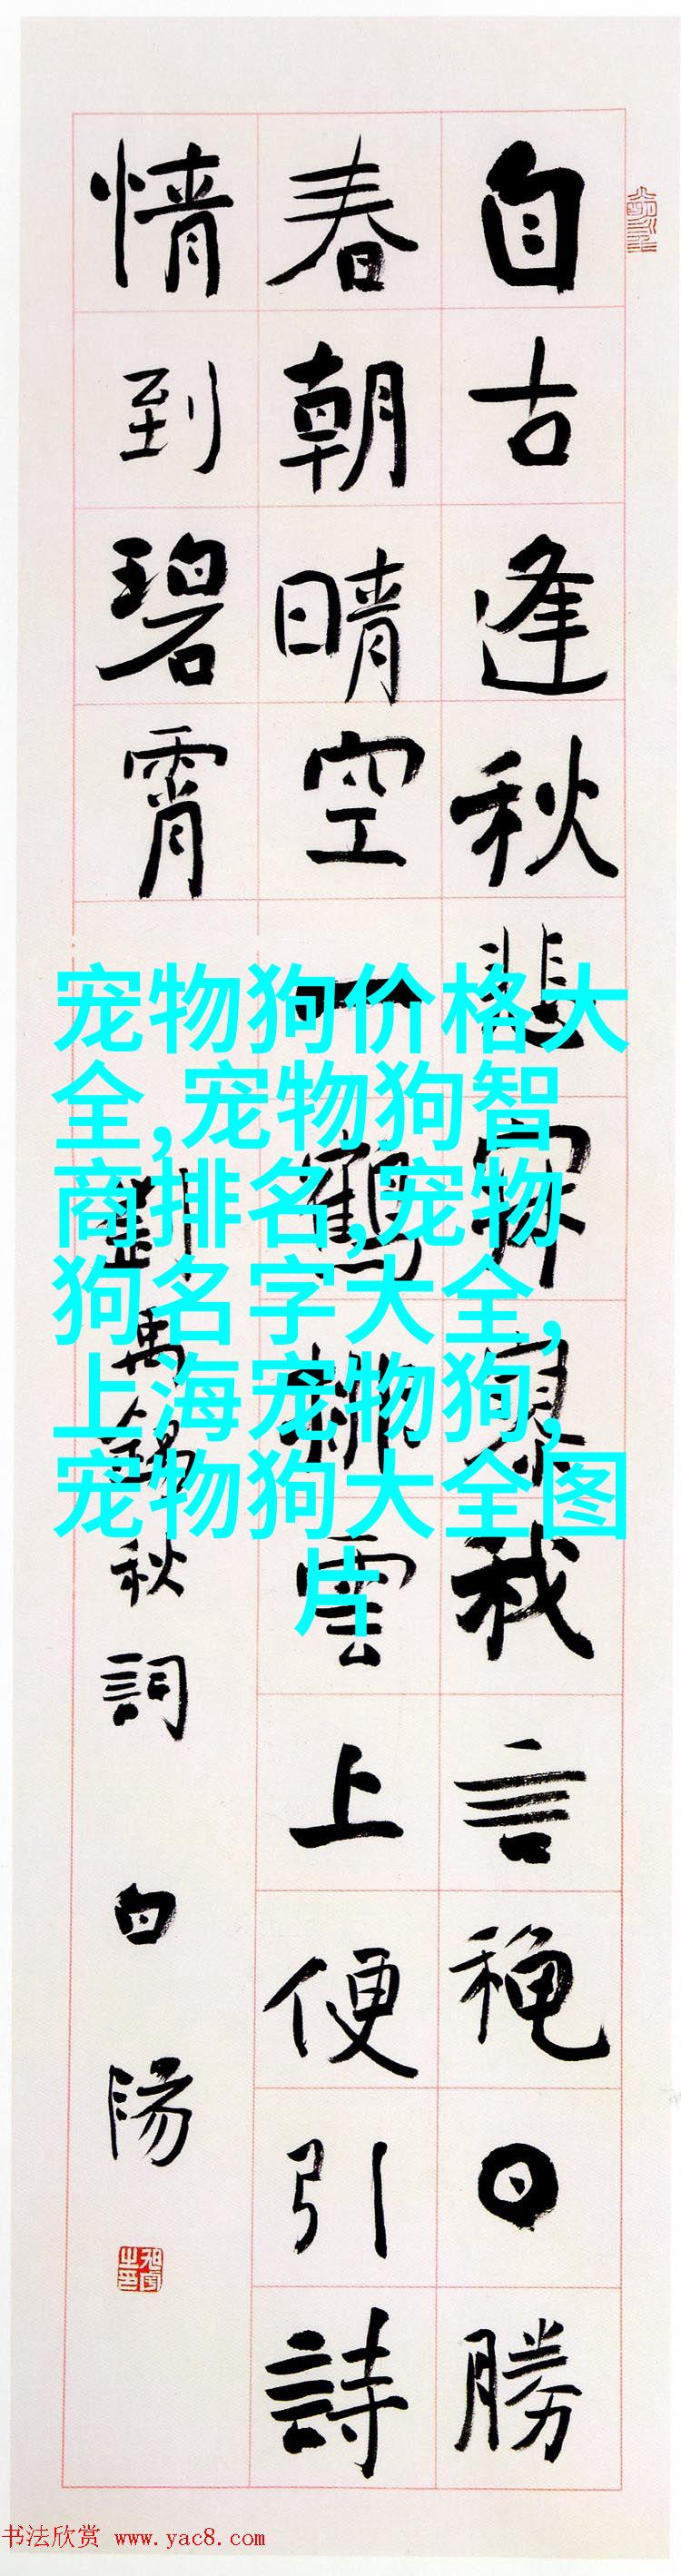 自古逢秋悲寂寥我言穐日勝
春朝晴空一鶴排雲上便引詩
情到碧霄
劉禹錫秋詞 白陽
宠物狗价格大
全,宠物狗智
商排名,宠物
狗名字大全,
上海宠物狗,
宠物狗大全图
片
书法欣赏 www.yac8.com